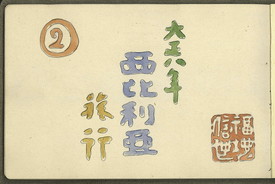 ②
大正八年
西比利亜
旅行
福地
信世